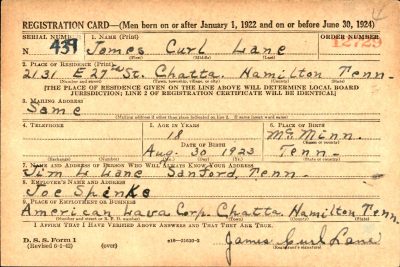 REGISTRATION CARD—(Men born on or after January 1, 1922 and on or before June 30, 1924)
SERIAL NUMBER 1. NAME (Print) ORDER NUMBER
N 439 James Curl Lane 12729
(First) (Middle) (Last)
2. PLACE OF RESIDENCE (Print)
2131 E 27th St. Chatta. Hamilton Tenn.
(Number and street) (Town, township, village, or city) (County) (State)
[THE PLACE OF RESIDENCE GIVEN ON THE LINE ABOVE WILL DETERMINE LOCAL BOARD
JURISDICTION; LINE 2 OF REGISTRATION CERTIFICATE WILL BE IDENTICAL]
3. MAILING ADDRESS
Same
[Mailing address if other than place indicated on line 2. If same insert word same]
4. TELEPHONE 5. AGE IN YEARS 6. PLACE OF BIRTH
18 Mc Minn
DATE OF BIRTH (Town or county)
Aug. 30 1923 Tenn.
(Exchange) (Number) (Mo.) (Day) (Yr.) (State or country)
7. NAME AND ADDRESS OF PERSON WHO WILL ALWAYS KNOW YOUR ADDRESS
Jim L Lane Sanford, Tenn.
8. EMPLOYER'S NAME AND ADDRESS
Joe Shenke
9. PLACE OF EMPLOYMENT OR BUSINESS
American Lava Corp. Chatta Hamilton Tenn
(Number and street or R. F. D. number) (Town) (County) (State)
I AFFIRM THAT I HAVE VERIFIED ABOVE ANSWERS AND THAT THEY ARE TRUE.
D. S. S. Form 1
(Revised 6-9-42) (over) 16—21630-2 James Curl Lane